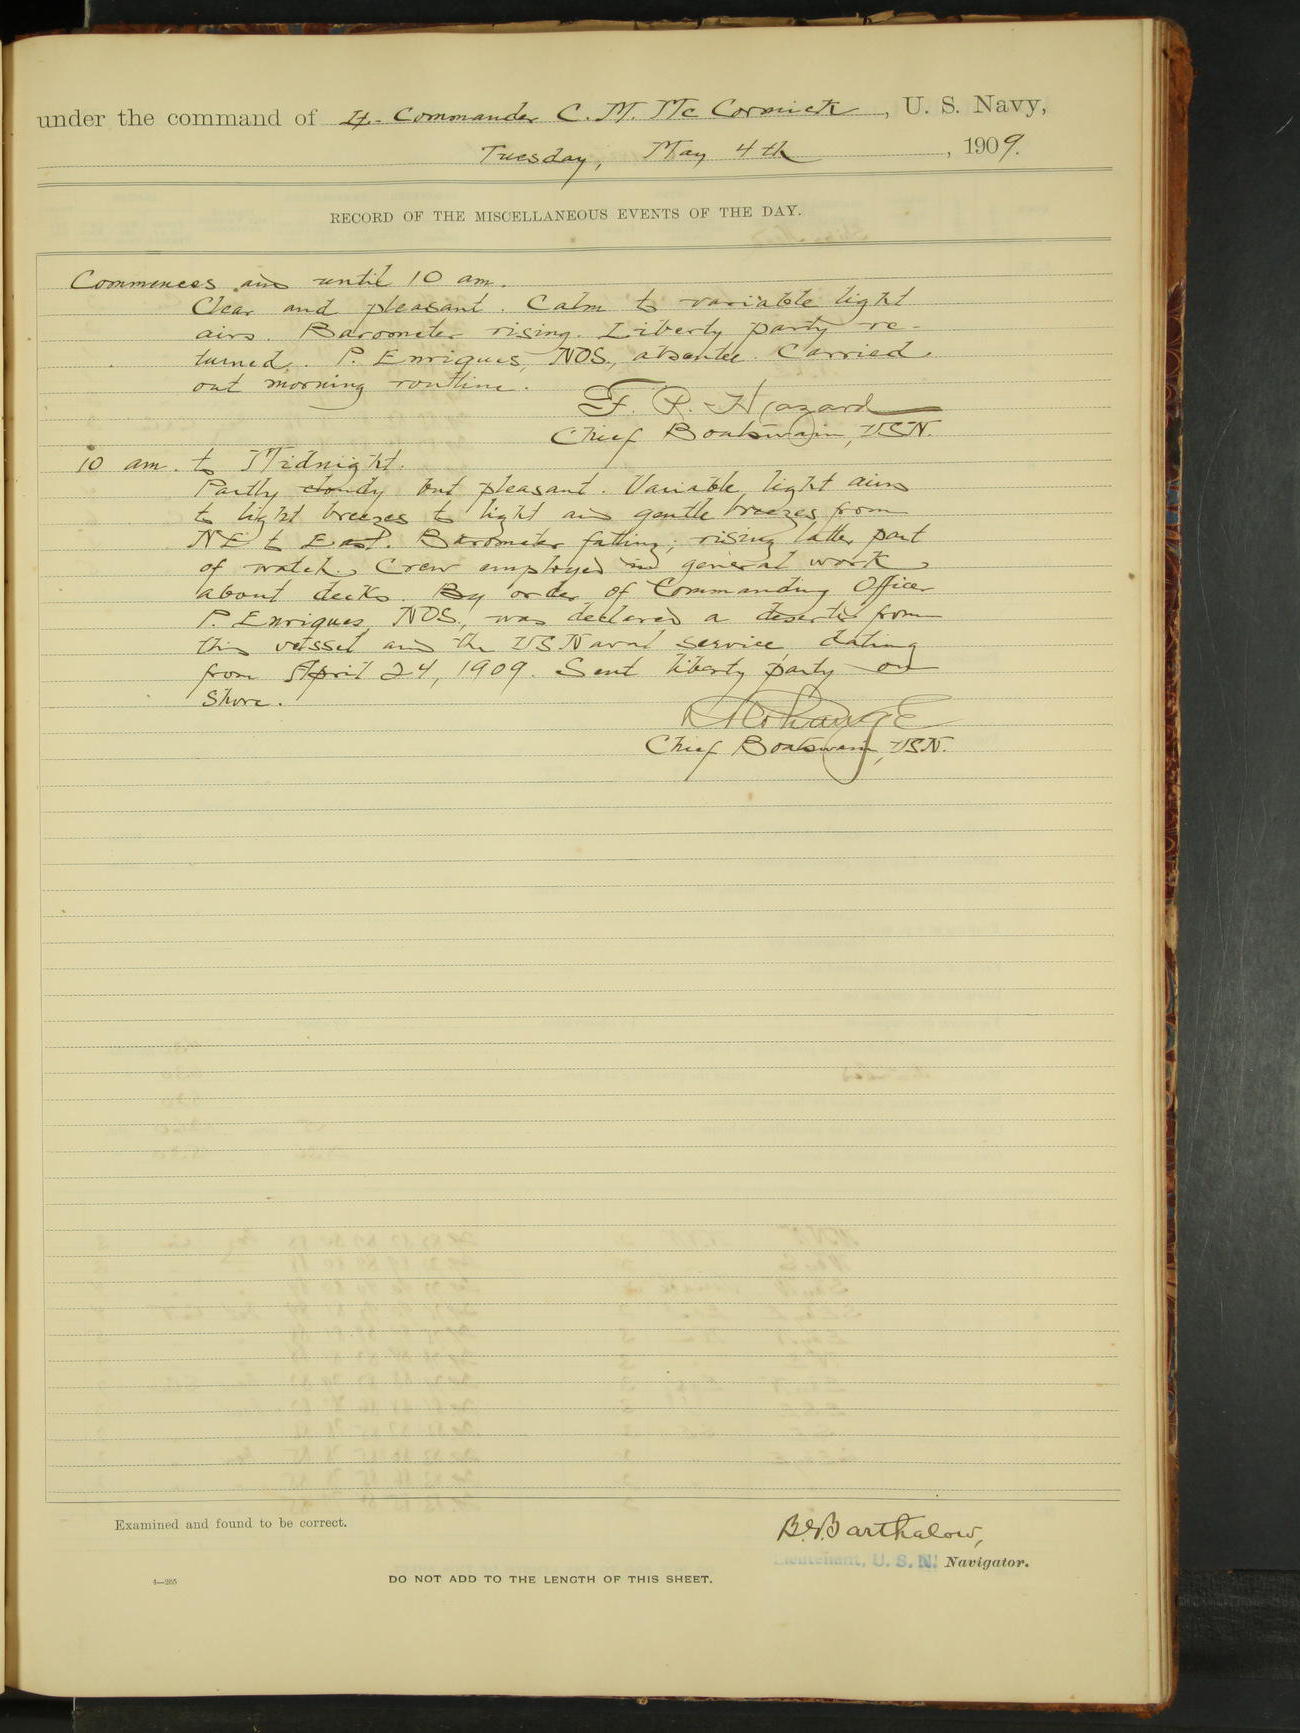 under the command of Lt. Commander C. M. Mc Cormick, U. S. Navy,
Tuesday, May 4th, 1909.
RECORD OF THE MISCELLANEOUS EVENTS OF THE DAY.
Commences and until 10 am.
Clear and pleasant. Calm to variable light
airs. Barometer rising. Liberty party re-
turned. P. Enriques, NOS., absentee. Carried
out morning routine.
F. R. Hazard
Chief Boatswain, USN.
10 am. to Midnight.
Partly cloudy but pleasant. Variable light airs
to light breezes to light and gentle breezes from
NE to East. Barometer falling; rising latter part
of watch. Crew employed in general work
about decks. By order of Commanding Officer
P. Enriques, NOS., was declared a deserter from
this vessel and the US Naval service dating
from April 24, 1909. Sent liberty party on
shore.
Chief Boatswain, USN.
Examined and found to be correct.
B. Barthalow,
Lieutenant, U. S. N. Navigator.
4—265
DO NOT ADD TO THE LENGTH OF THIS SHEET.